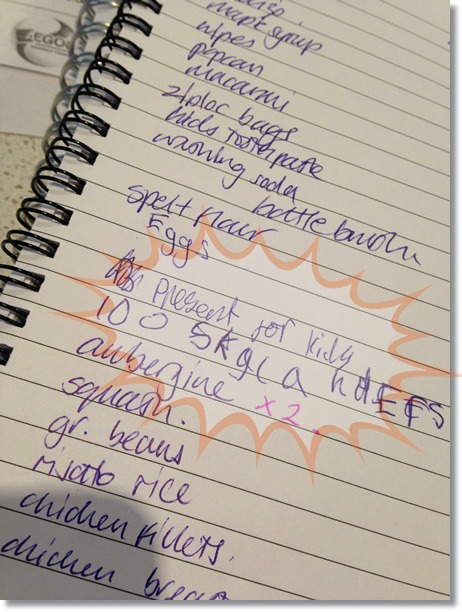 maple syrup
wipes
popcorn
macaroni
ziploc bags
kids toothpaste
washing soda
bottle brush
spelt flour
Eggs
present for kids
100 SkgLa hdEFS
aubergine x2
squash.
gr. beans
risotto rice
chicken fillets.
chicken breas